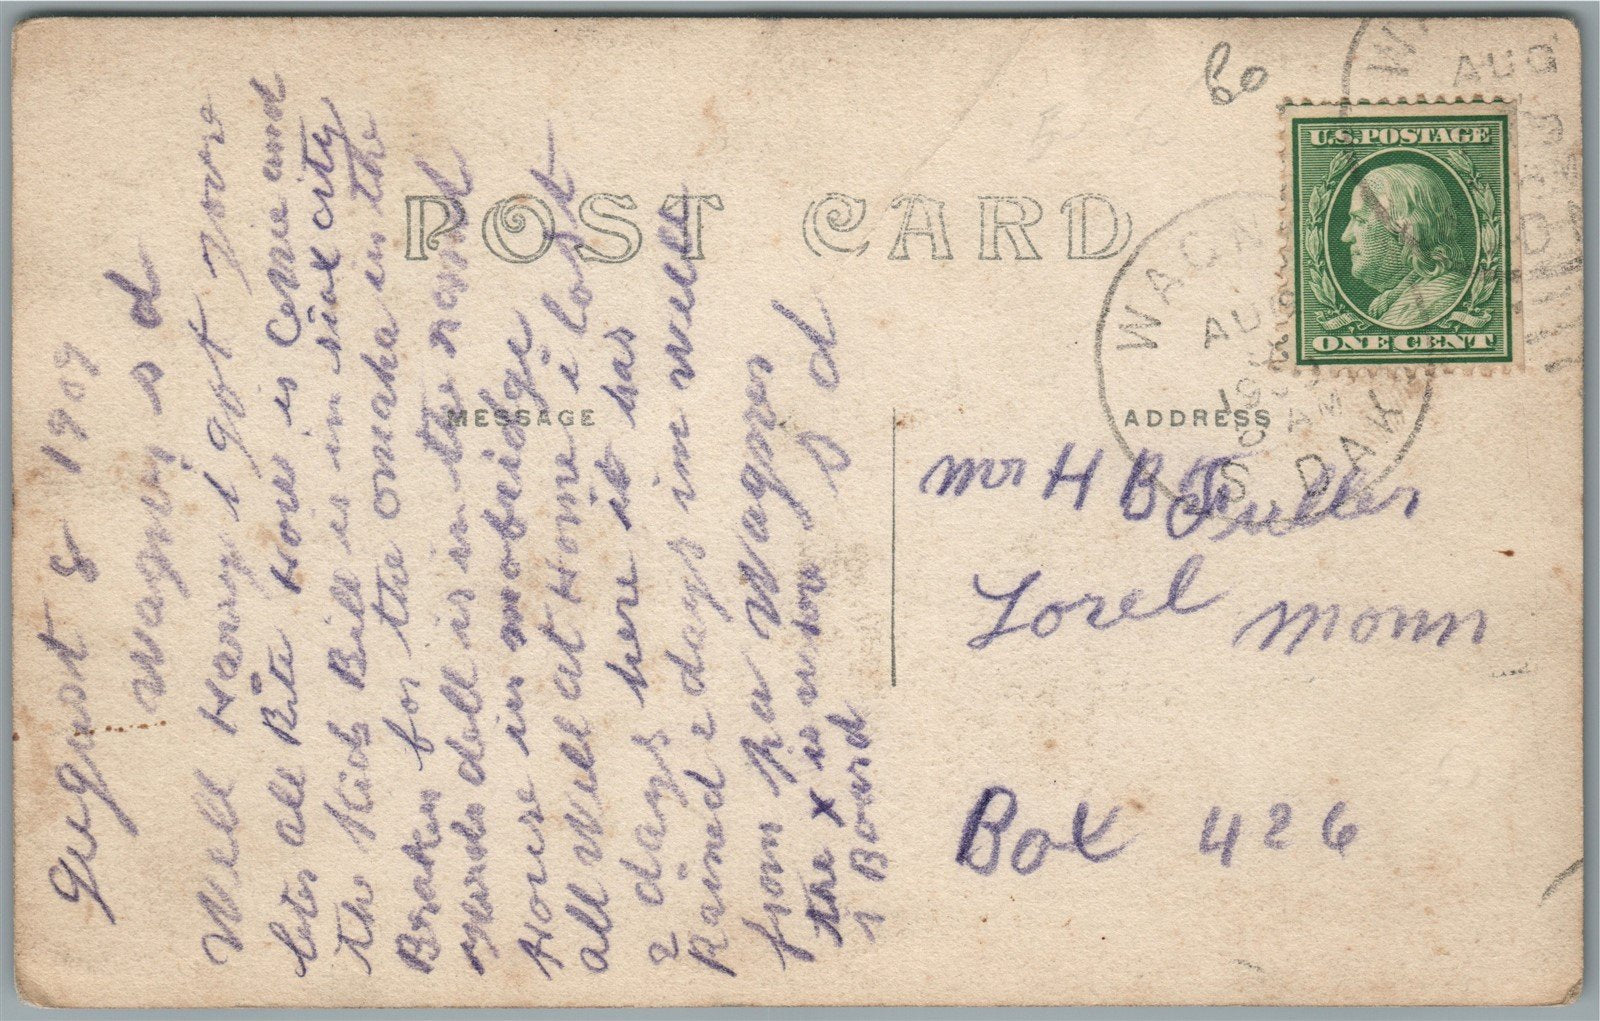 August 8 1909
Wagner S D
Well Harry i got yours
leter all Rite Hows is Cmie and
the Kids Bill is in siox city
Braken for the omaha in the
yards dell is in the round
House in mobridge
all Well at Home i lost
2 days here it has
Rained 2 days in well
from hu Wagner
the x is wher S D
i Board
POST CARD
MESSAGE
ADDRESS
60
U.S. POSTAGE
ONE CENT
WAGN
AUG
AM
S. DAK
AUG
Mr H B Fuller
Lorel Monn
Box 426